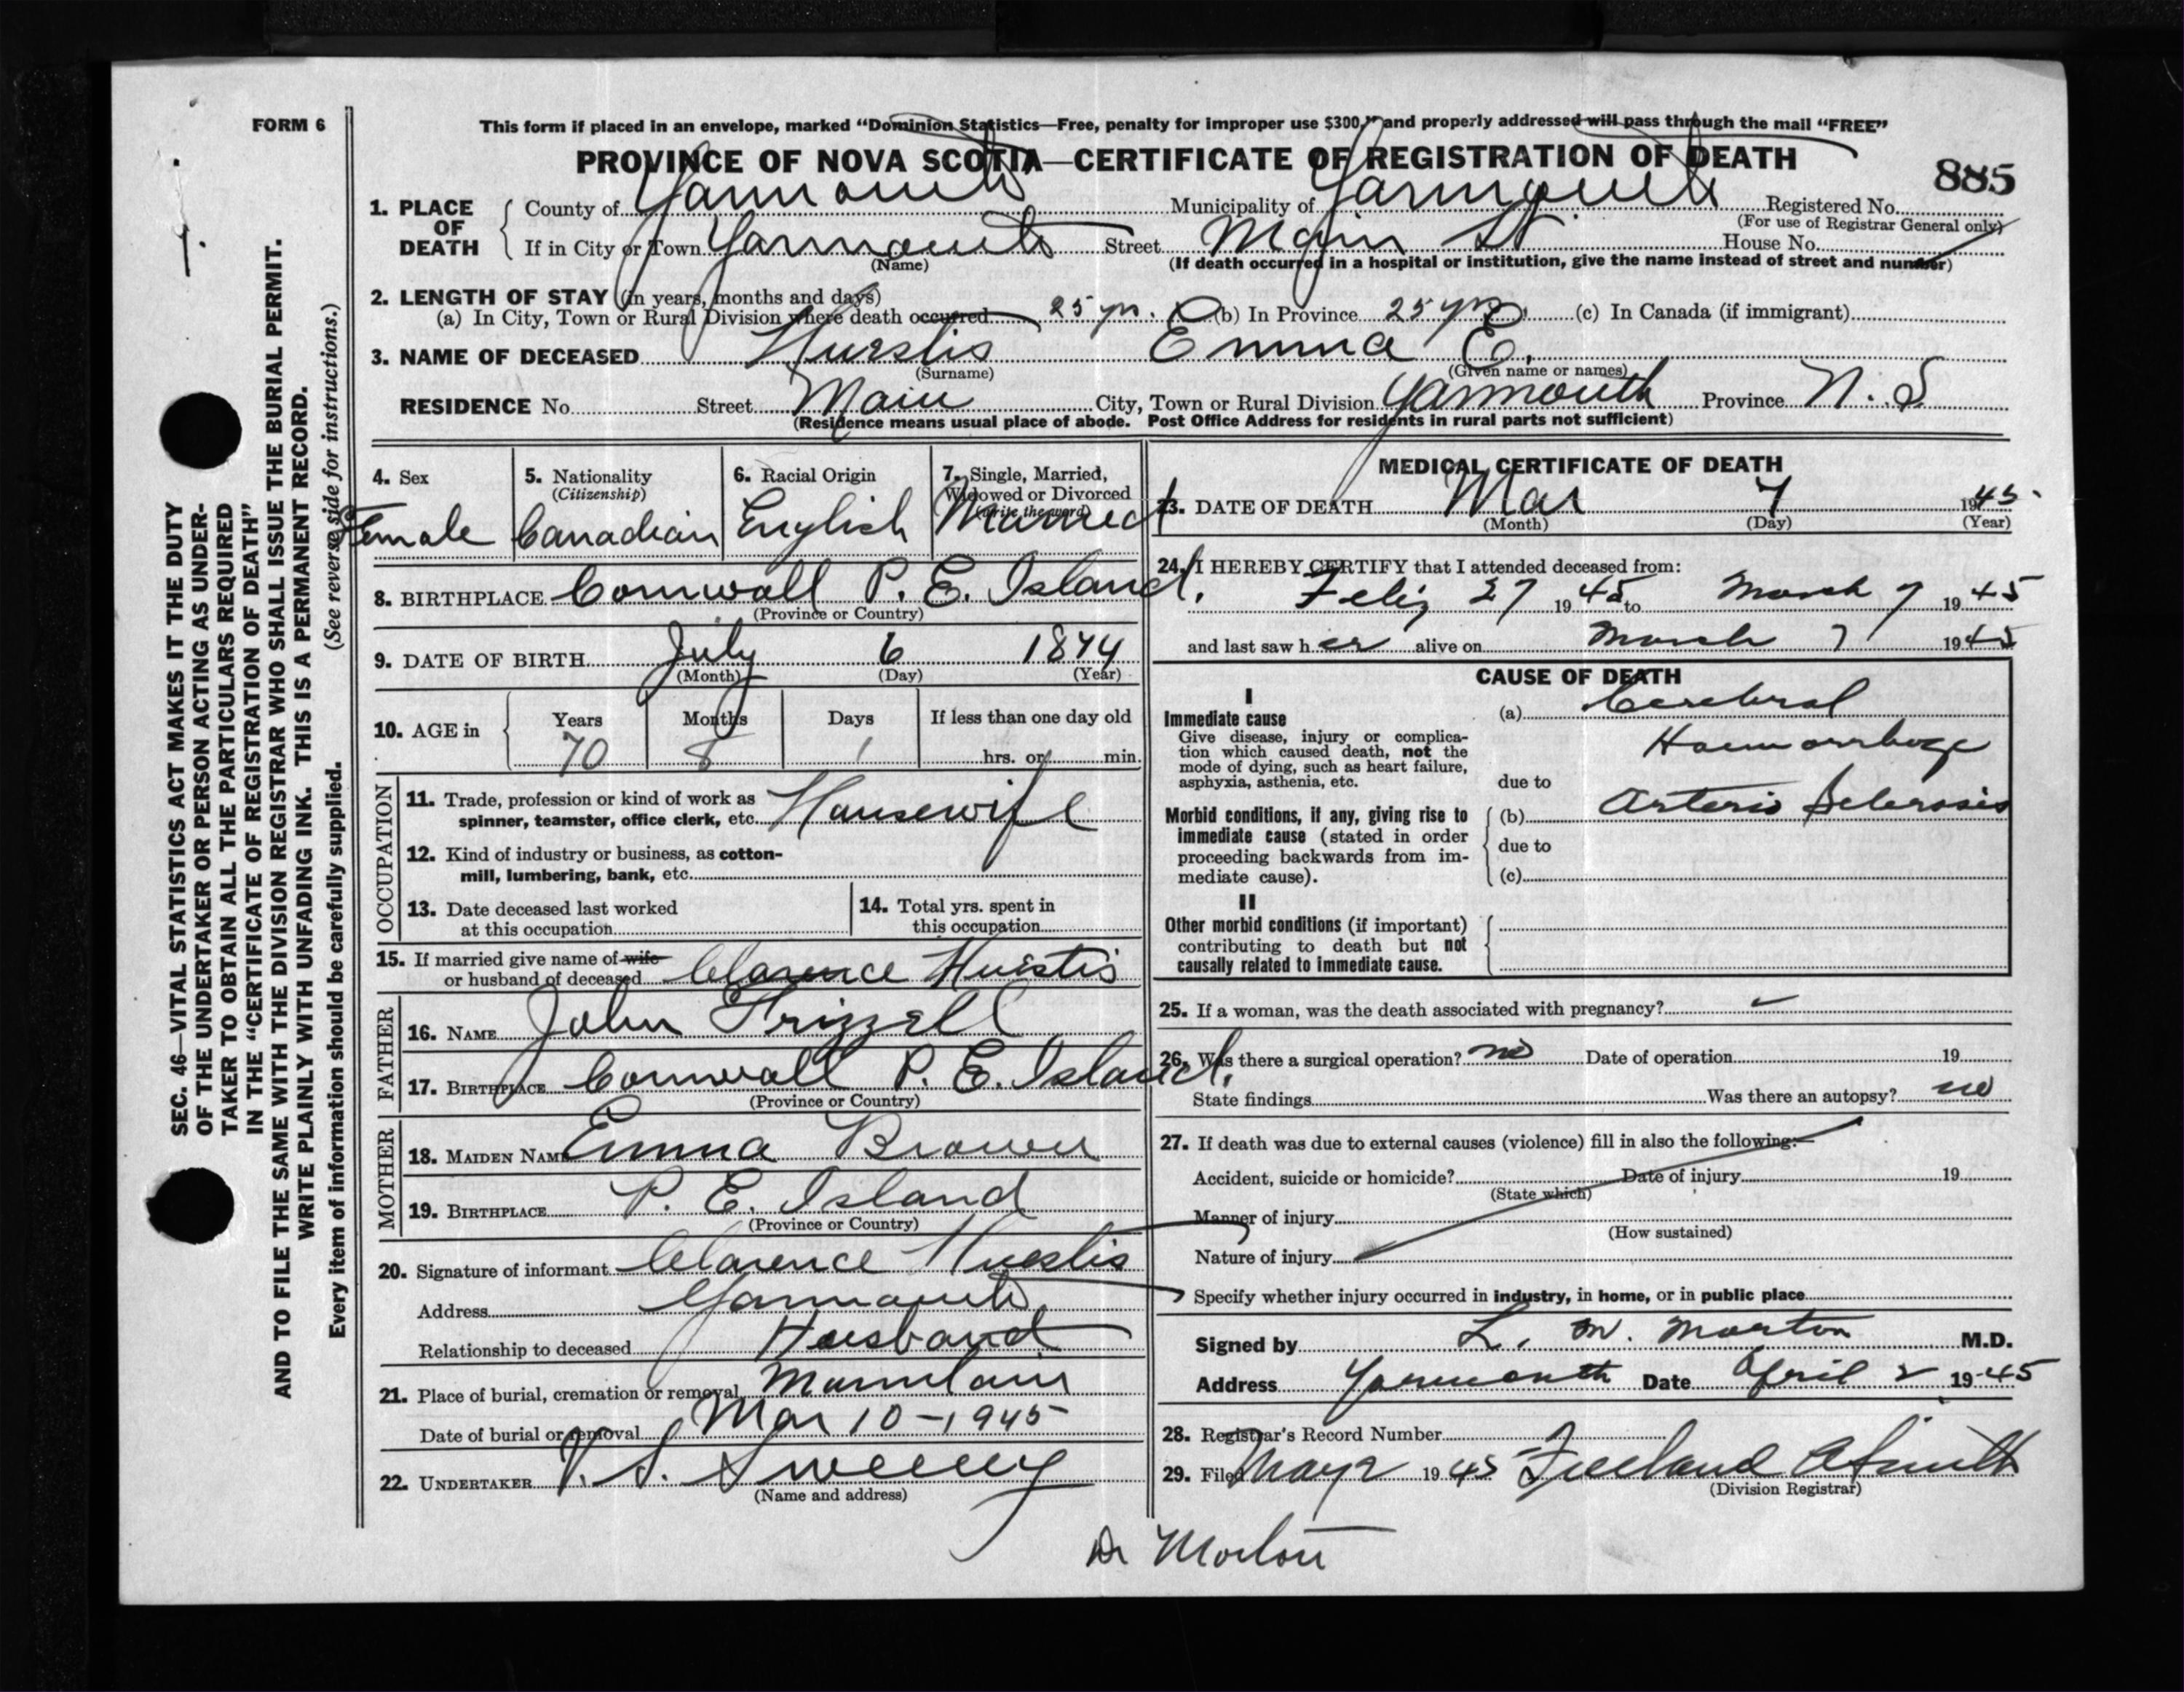 FORM 6
This form if placed in an envelope, marked “Dominion Statistics—Free, penalty for improper use $300,” and properly addressed will pass through the mail “FREE”
PROVINCE OF NOVA SCOTIA—CERTIFICATE OF REGISTRATION OF DEATH
885
1. PLACE OF DEATH
County of Yarmouth Municipality of Yarmouth Registered No.
(For use of Registrar General only)
If in City or Town Yarmouth Street Main St House No.
(Name) (If death occurred in a hospital or institution, give the name instead of street and number)
2. LENGTH OF STAY (in years, months and days)
(a) In City, Town or Rural Division where death occurred 25 yrs. (b) In Province 25 yrs (c) In Canada (if immigrant)
3. NAME OF DECEASED Huestis Emma E.
(Surname) (Given name or names)
RESIDENCE No. Street Main City, Town or Rural Division Yarmouth Province N. S
(Residence means usual place of abode. Post Office Address for residents in rural parts not sufficient)
4. Sex
Female
5. Nationality
(Citizenship)
Canadian
6. Racial Origin
English
7. Single, Married,
Widowed or Divorced
(Write the word)
Married
8. BIRTHPLACE Cornwall P. E. Island.
(Province or Country)
9. DATE OF BIRTH July 6 1874
(Month) (Day) (Year)
10. AGE in Years Months Days If less than one day old
70 8 1 hrs. or min.
OCCUPATION
11. Trade, profession or kind of work as
spinner, teamster, office clerk, etc. Housewife
12. Kind of industry or business, as cotton-
mill, lumbering, bank, etc.
13. Date deceased last worked
at this occupation
14. Total yrs. spent in
this occupation
15. If married give name of wife
or husband of deceased Clarence Huestis
FATHER
16. NAME John Frizzell
17. BIRTHPLACE Cornwall P. E. Island.
(Province or Country)
MOTHER
18. MAIDEN NAME Emma Brown
19. BIRTHPLACE P. E. Island
(Province or Country)
20. Signature of informant Clarence Huestis
Address Yarmouth
Relationship to deceased Husband
21. Place of burial, cremation or removal
Date of burial or removal Mar 10-1945
22. UNDERTAKER V. S. Sweeny
(Name and address)
MEDICAL CERTIFICATE OF DEATH
23. DATE OF DEATH Mar 7 1945.
(Month) (Day) (Year)
24. I HEREBY CERTIFY that I attended deceased from:
27 1945 to March 7 1945
and last saw her alive on March 7 1945
CAUSE OF DEATH
I
Immediate cause
Give disease, injury or complica-
tion which caused death, not the
mode of dying, such as heart failure,
asphyxia, asthenia, etc.
(a) Cerebral
Haemorrhage
due to
Morbid conditions, if any, giving rise to
immediate cause (stated in order
proceeding backwards from im-
mediate cause).
(b) Arterio Sclerosis
due to
(c)
II
Other morbid conditions (if important)
contributing to death but not
causally related to immediate cause.
25. If a woman, was the death associated with pregnancy?
26. Was there a surgical operation? no Date of operation 19
State findings Was there an autopsy? no
27. If death was due to external causes (violence) fill in also the following:—
Accident, suicide or homicide? Date of injury 19
(State which)
Manner of injury
(How sustained)
Nature of injury
Specify whether injury occurred in industry, in home, or in public place
Signed by L. M. Morton M.D.
Address Yarmouth Date April 2 1945
28. Registrar's Record Number
29. Filed May 2 1945 Freeland A Smith
(Division Registrar)
Dr Morton
SEC. 46—VITAL STATISTICS ACT MAKES IT THE DUTY
OF THE UNDERTAKER OR PERSON ACTING AS UNDER-
TAKER TO OBTAIN ALL THE PARTICULARS REQUIRED
IN THE “CERTIFICATE OF REGISTRATION OF DEATH”
AND TO FILE THE SAME WITH THE DIVISION REGISTRAR WHO SHALL ISSUE THE BURIAL PERMIT.
WRITE PLAINLY WITH UNFADING INK. THIS IS A PERMANENT RECORD.
Every item of information should be carefully supplied. (See reverse side for instructions.)